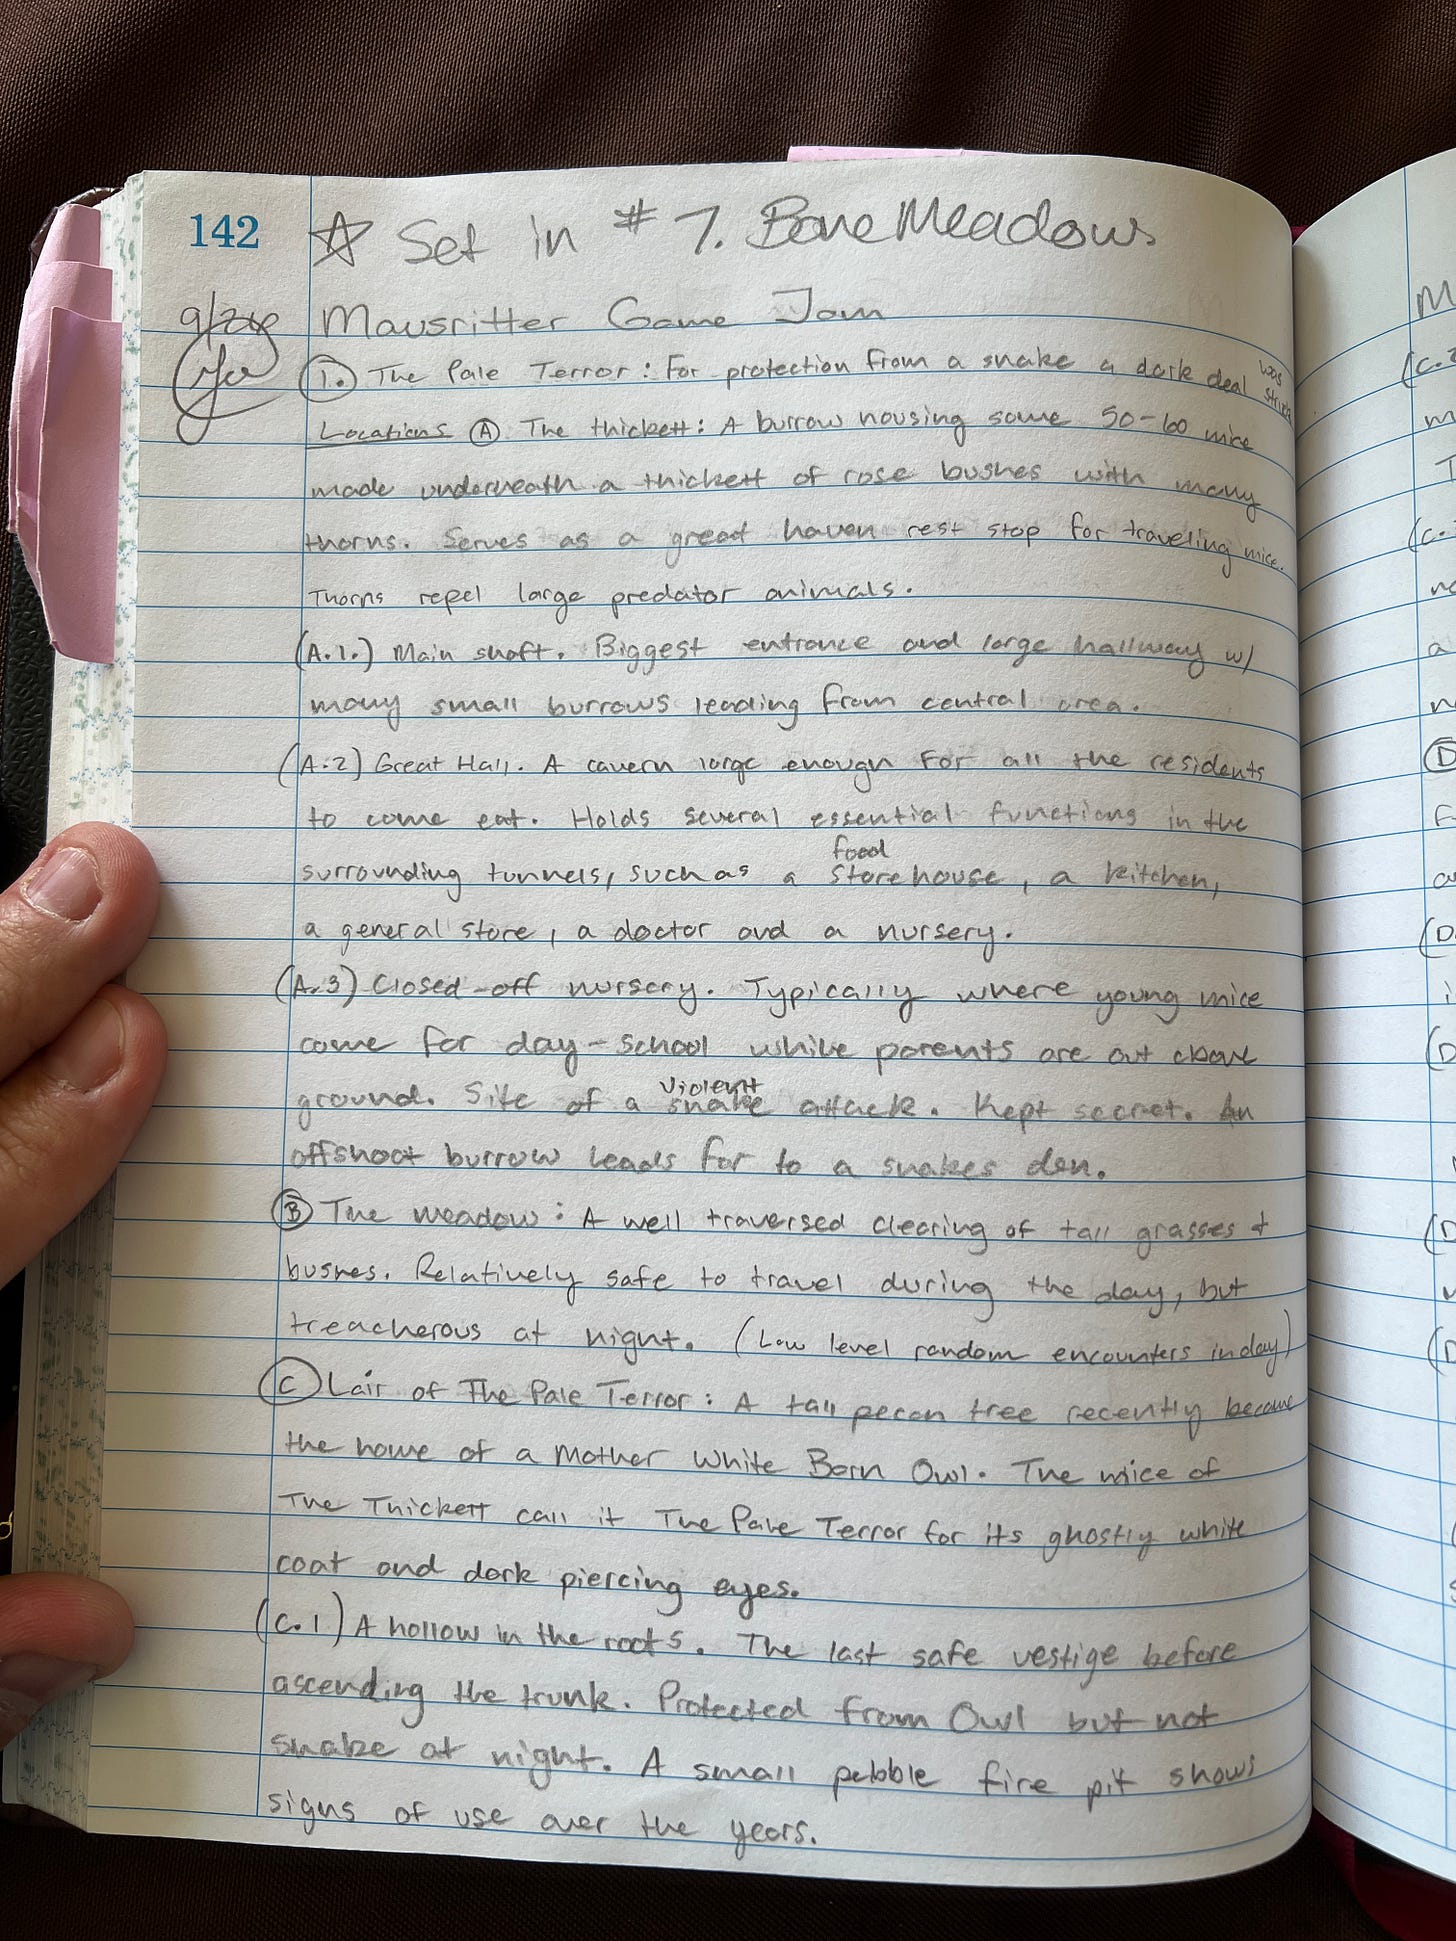 142
☆ Set in # 7. Bone Meadows
9/26
Mausritter Game Jam
1. The Pale Terror: For protection from a snake a dark deal was struck
Locations A The thickett: A burrow housing some 50-60 mice
made underneath a thickett of rose bushes with many
thorns. Serves as a great haven rest stop for traveling mice.
Thorns repel large predator animals.
(A.1.) Main shaft. Biggest entrance and large hallway w/
many small burrows leading from central area.
(A.2) Great Hall. A cavern large enough for all the residents
to come eat. Holds several essential functions in the
food
surrounding tunnels, such as a storehouse, a kitchen,
a general store, a doctor and a nursery.
(A.3) Closed-off nursery. Typically where young mice
come for day-school while parents are out above
violent
ground. Site of a snake attack. Kept secret. An
offshoot burrow leads for to a snakes den.
B The meadow: A well traversed clearing of tall grasses &
bushes. Relatively safe to travel during the day, but
treacherous at night. (Low level random encounters in day)
C Lair of The Pale Terror: A tall pecan tree recently became
the home of a Mother White Barn Owl. The mice of
The Thickett call it The Pale Terror for its ghostly white
coat and dark piercing eyes.
(C.1) A hollow in the roots. The last safe vestige before
ascending the trunk. Protected from Owl but not
snake at night. A small pebble fire pit shows
signs of use over the years.
M
(C.
D